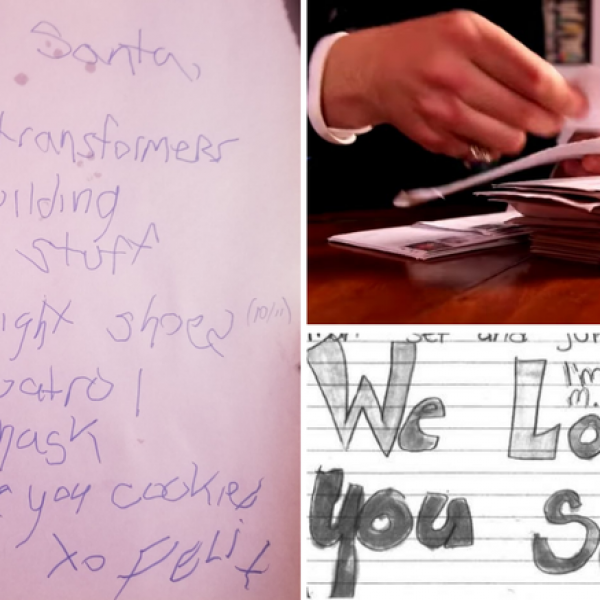 Santa,
transformers
uilding
stuff
ight shoes (10/11)
patrol
mask
you cookies
xo FELIX
set and jun
I'm
We Lo
m.
you S